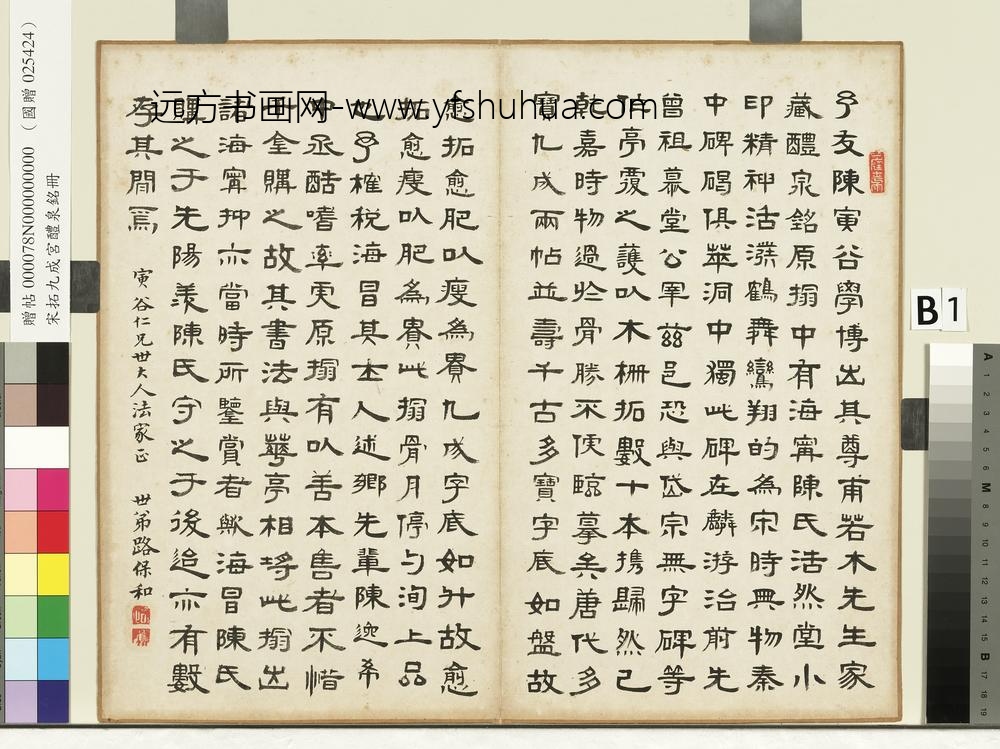 予友陳寅谷學博出其尊甫若木先生家
藏醴泉銘原搨中有海甯陳氏浩然堂小
印精神活潑鶴舞鸞翔的為宋時興物秦
中碑碣俱萃洞中獨此碑在麟游治前先
曾祖慕堂公宰茲邑恐與岱宗無字碑等
亭覆之護以木柵拓數十本攜歸然已
乾嘉時物過於骨勝不便臨摹矣唐代多
寶九成兩帖並壽千古多寶字底如盤故
愈拓愈肥以瘦為貴九成字底如升故愈
拓愈瘦以肥為貴此搨骨月停勻洵上品
也予榷稅海昌其士人述鄉先輩陳迦希
中丞酷嗜率更原搨有以善本售者不惜
千金購之故其書法與華亭相埒此搨出
諸海甯抑亦當時所鑒賞者歟海昌陳氏
購之于先陽羨陳氏守之于後迨亦有數
存其間焉
寅谷仁兄世大人法家正
世弟路保和
贈帖 000078N000000000 （ 國贈 025424）
宋拓九成宮醴泉銘冊
B 1
远方书画网-www.yfshuhua.com